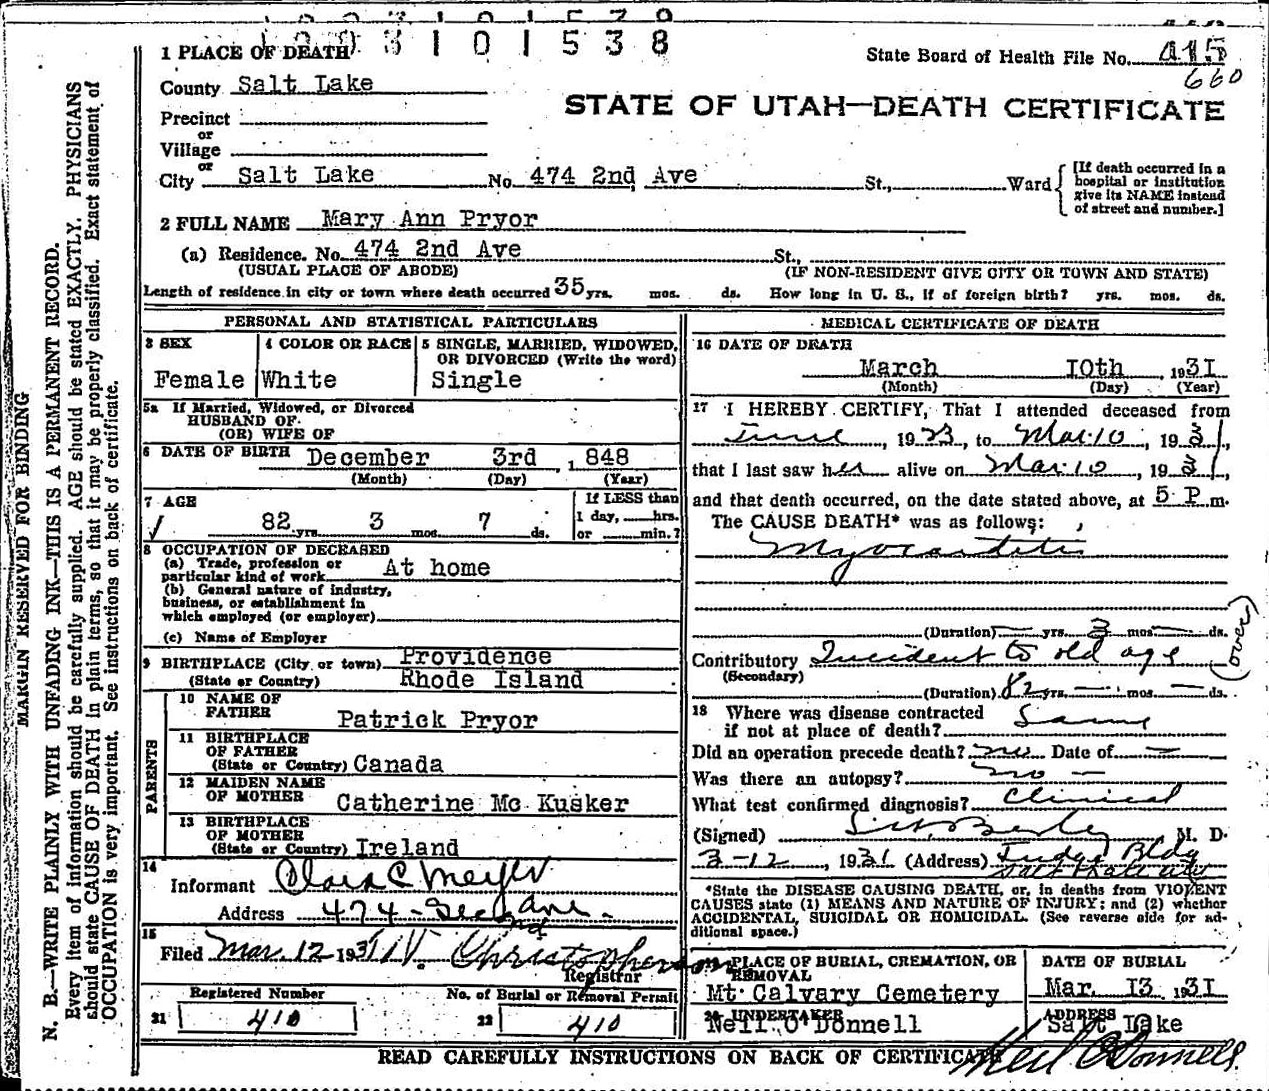 1003101538
1 PLACE OF DEATH
State Board of Health File No. 415
660
County Salt Lake
STATE OF UTAH—DEATH CERTIFICATE
Precinct
or
Village
or
City Salt Lake No. 474 2nd Ave St., Ward
[If death occurred in a hospital or institution give its NAME instead of street and number.]
2 FULL NAME Mary Ann Pryor
(a) Residence. No. 474 2nd Ave St.,
(USUAL PLACE OF ABODE) (IF NON-RESIDENT GIVE CITY OR TOWN AND STATE)
Length of residence in city or town where death occurred 35 yrs. mos. ds. How long in U. S., if of foreign birth? yrs. mos. ds.
PERSONAL AND STATISTICAL PARTICULARS
3 SEX
Female
4 COLOR OR RACE
White
5 SINGLE, MARRIED, WIDOWED,
OR DIVORCED (Write the word)
Single
5a If Married, Widowed, or Divorced
HUSBAND OF
(OR) WIFE OF
6 DATE OF BIRTH December 3rd , 1848
(Month) (Day) (Year)
7 AGE
If LESS than
82 yrs. 3 mos. 7 ds.
1 day, hrs.
or min.?
8 OCCUPATION OF DECEASED
(a) Trade, profession or
particular kind of work At home
(b) General nature of industry,
business, or establishment in
which employed (or employer)
(c) Name of Employer
9 BIRTHPLACE (City or town) Providence
(State or Country) Rhode Island
PARENTS
10 NAME OF
FATHER Patrick Pryor
11 BIRTHPLACE
OF FATHER
(State or Country) Canada
12 MAIDEN NAME
OF MOTHER Catherine Mc Kusker
13 BIRTHPLACE
OF MOTHER
(State or Country) Ireland
14
Informant Clara C Meyer
Address 474 - Second ave.
15
Filed Mar. 12 1931 W. Christopherson
Registrar
Registered Number
21 410
No. of Burial or Removal Permit
22 410
MEDICAL CERTIFICATE OF DEATH
16 DATE OF DEATH
March 10th , 1931
(Month) (Day) (Year)
17 I HEREBY CERTIFY, That I attended deceased from
June , 1923, to Mar. 10 , 1931,
that I last saw her alive on Mar 10 , 1931
and that death occurred, on the date stated above, at 5 P m.
The CAUSE DEATH* was as follows:
Myocarditis
(Duration) — yrs. 3 mos. — ds.
Contributory Incident to old age
(Secondary)
(over)
(Duration) 82 yrs. — mos. — ds.
18 Where was disease contracted
if not at place of death? Same
Did an operation precede death? no Date of —
Was there an autopsy? no —
What test confirmed diagnosis? Clinical
(Signed) M. D.
3-12 , 1931 (Address) Judge Bldg
Salt Lake City
*State the DISEASE CAUSING DEATH, or, in deaths from VIOLENT
CAUSES state (1) MEANS AND NATURE OF INJURY; and (2) whether
ACCIDENTAL, SUICIDAL OR HOMICIDAL. (See reverse side for ad-
ditional space.)
PLACE OF BURIAL, CREMATION, OR
REMOVAL
Mt Calvary Cemetery
DATE OF BURIAL
Mar. 13 , 1931
20 UNDERTAKER
Neil O'Donnell
ADDRESS
Salt Lake
Neil O'Donnell
READ CAREFULLY INSTRUCTIONS ON BACK OF CERTIFICATE
MARGIN RESERVED FOR BINDING
N. B.—WRITE PLAINLY WITH UNFADING INK—THIS IS A PERMANENT RECORD.
Every item of information should be carefully supplied. AGE should be stated EXACTLY. PHYSICIANS
should state CAUSE OF DEATH in plain terms, so that it may be properly classified. Exact statement of
OCCUPATION is very important. See instructions on back of certificate.